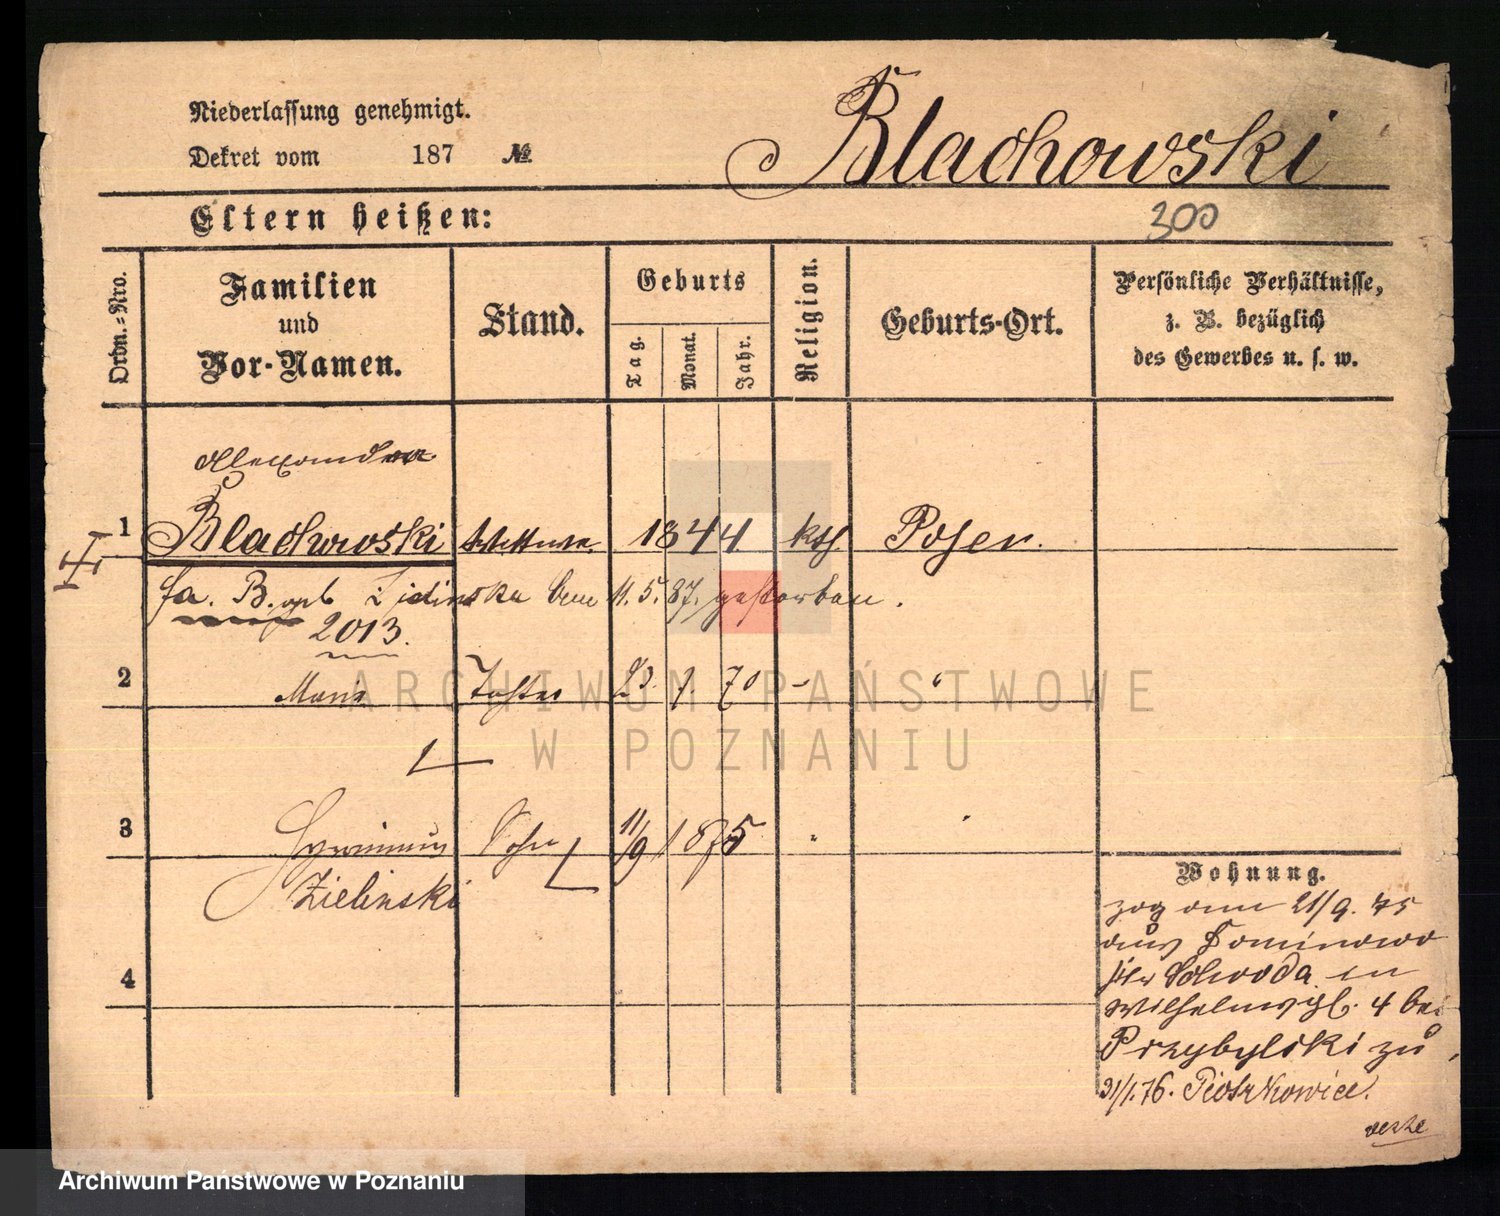 Niederlassung genehmigt.
Dekret vom 187 №
Blachowski
Eltern heißen:
300
Ordn.-Nro.
Familien
und
Vor-Namen.
Stand.
Geburts
Tag.
Monat.
Jahr.
Religion.
Geburts-Ort.
Persönliche Verhältnisse,
z. B. bezüglich
des Gewerbes u. s. w.
Alexandra
1 Blachowski Wittwe 1844 kth. Posen.
fa. B. geb. Zielinska am 11.5.87. gestorben.
2013.
2 Maria Tochter 23. 1. 70 - "
3 Hyronimus Sohn 11/9 1875 " "
Zielinski
Wohnung.
zog am 21/9. 75
aus Dominowo
Schroda in
Wilhelmspl. 4 bei
Przybylski zu,
31/1.76. Piotrkowice.
4
ARCHIWUM PAŃSTWOWE
W POZNANIU
Archiwum Państwowe w Poznaniu